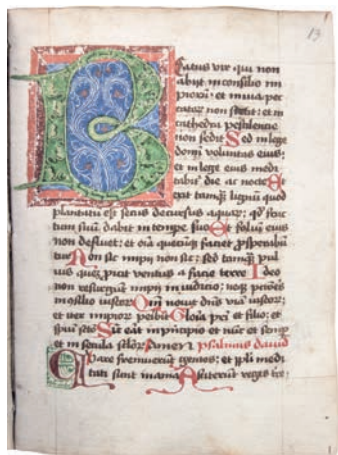 13
Beatus vir qui non
abijt in consilio im
pioru᷒: et in via pec
cator̄ non stetit: et in
cathedra pestilencie
non sedit Sed in lege
domī voluntas eius:
et in lege eius medi
tabit᷑ die ac nocte Et
erit tamq̄ lignū quod
plantatū est secus decursus aquar̄: qd᷒ fruc
tum suū dabit in tempe suo Et foliū eius
non defluet: et oīa quecūq̄ faciet prosperabūt᷑
Non sic impij non sic: sed tamq̄ pul
uis quez proicit ventus a facie terre Ideo
non resurgūt impij in iudicio: neq̄ pctōres
in ꝯsilio iustor̄ Qm̄ nouit dn̄s viā iustor̄:
et iter impior̄ peribit Gloīa prī et filio: et
spūi scō Sicut erat in pⁱncipio et nūc et semp̄
et in secula sclōr̄ Amen psalmus dauid
Quare fremuerūt gentes: et ppl̄i medi
tati sunt inania Astiterūt reges tre᷒